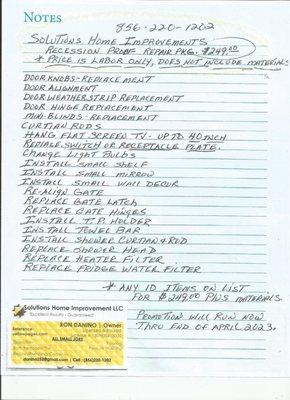 NOTES
856-220-1202
SOLUTIONS HOME IMPROVEMENTS
RECESSION PROOF REPAIR PKG. $249.00
* PRICE IS LABOR ONLY, DOES NOT INCLUDE MATERIALS
DOOR KNOBS-REPLACEMENT
DOOR ALIGNMENT
DOOR WEATHERSTRIP REPLACEMENT
DOOR HINGE REPLACEMENT
MINI-BLINDS-REPLACEMENT
CURTIAN RODS
HANG FLAT SCREEN TV-UP TO 40 INCH
REPLACE SWITCH OR RECEPTACLE PLATE.
CHANGE LIGHT BULBS
INSTALL SMALL SHELF
INSTALL SMALL MIRROW
INSTALL SMALL WALL DECOR
RE-ALIGN GATE
REPLACE GATE LATCH
REPLACE GATE HINGES
INSTALL T.P. HOLDER
INSTALL TOWEL BAR
INSTALL SHOWER CURTAN & ROD
REPLACE SHOWER HEAD
REPLACE HEATER FILTER
REPLACE FRIDGE WATER FILTER
* ANY 10 ITEMS ON LIST
FOR $249.00 PLUS MATERIALS.
PROMOTION WILL RUN NOW
THRU END OF APRIL 2023.
Solutions Home Improvement LLC
"Excellent Results - Guaranteed"
RON DANINO | Owner
ALL SMALL JOBS
Cell : (856)220-1202